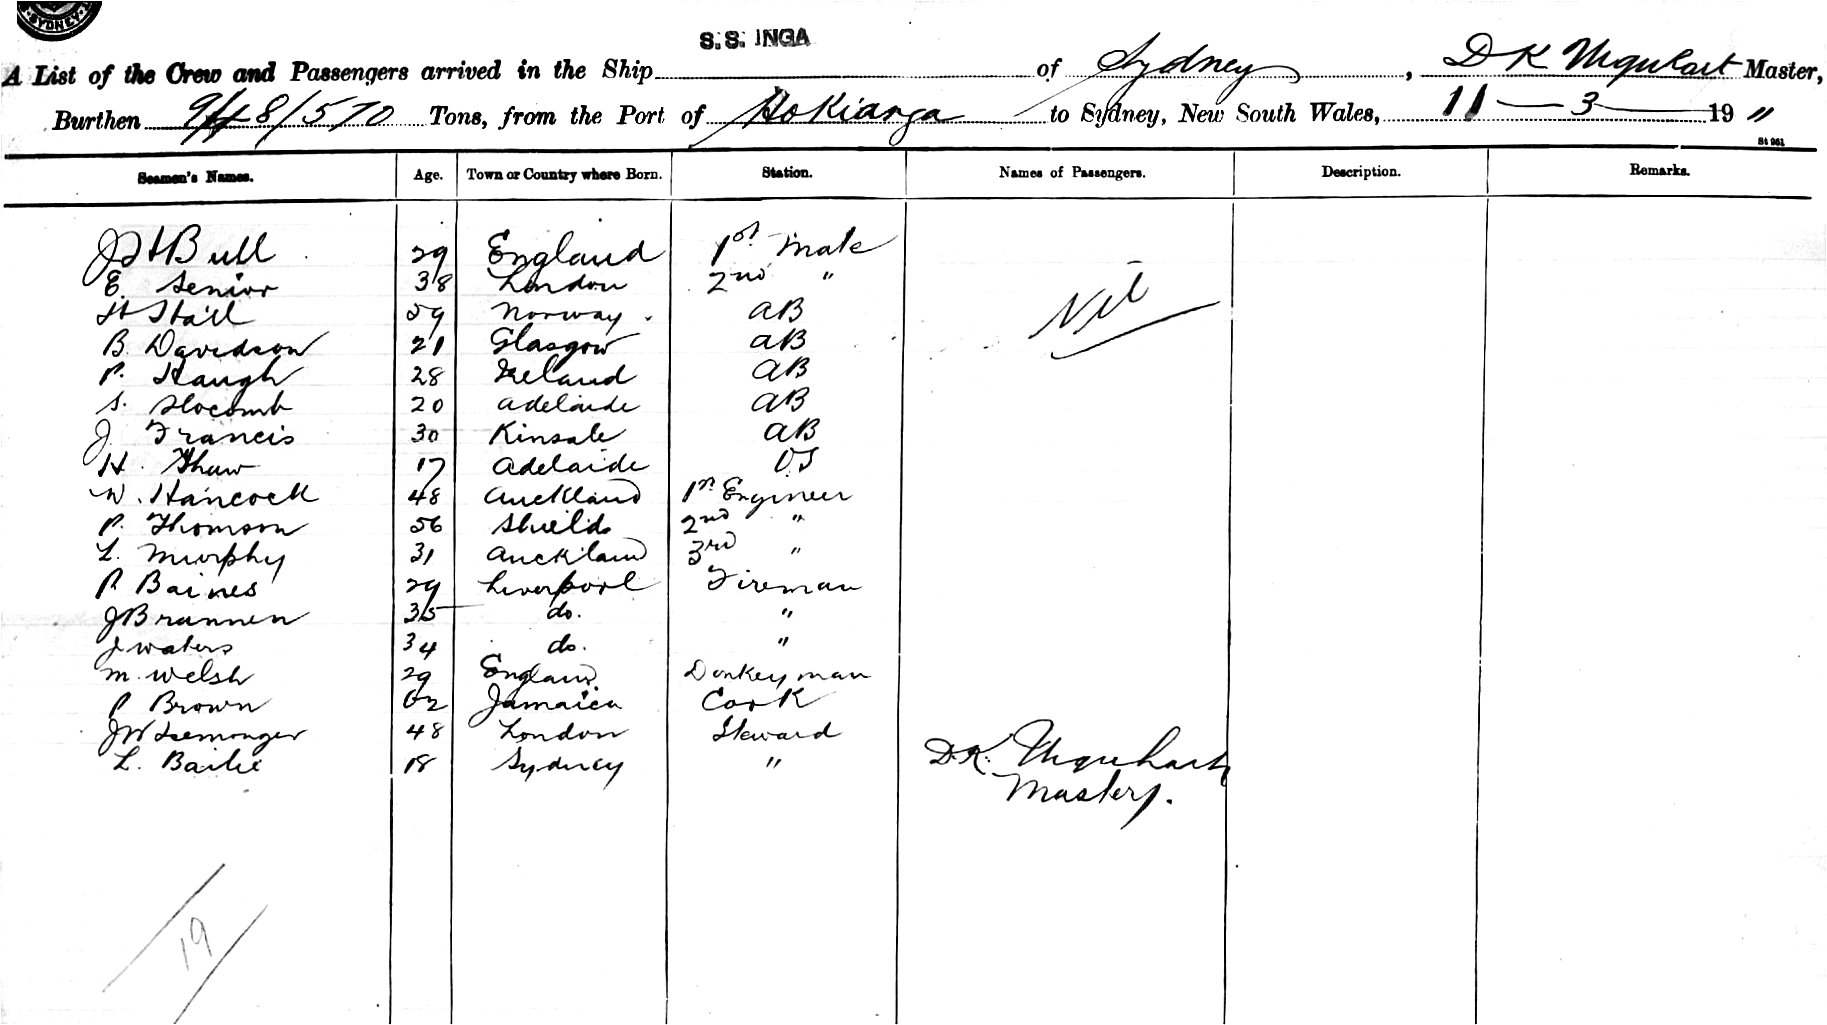 SYDNEY
S.S. INGA
A List of the Crew and Passengers arrived in the Ship of Sydney, D K Urquhart Master,
Burthen 948/570 Tons, from the Port of Hokianga to Sydney, New South Wales, 11 — 3 — 19 11
St 951
Seamen's Names. Age. Town or Country where Born. Station. Names of Passengers. Description. Remarks.
J H Bull 29 England 1st Mate
E. Senior 38 London 2nd "
Nil
59 Norway. AB
B. Davidson 21 Glasgow AB
P. Haugh 28 Ireland AB
S. Slocomb 20 Adelaide AB
J. Francis 30 Kinsale AB
H. Shaw 17 Adelaide OS
W. Hancock 48 Auckland 1st Engineer
P. Thomson 56 Shields 2nd "
L. Murphy 31 Auckland 3rd "
P Baines 29 Liverpool Fireman
J Brannen 35 do. "
J Waters 34 do. "
M. Welsh 29 England Donkeyman
P Brown 62 Jamaica Cook
J W Isemonger 48 London Steward
L. Bailie 18 Sydney "
D.K. Urquhart
Master.
19